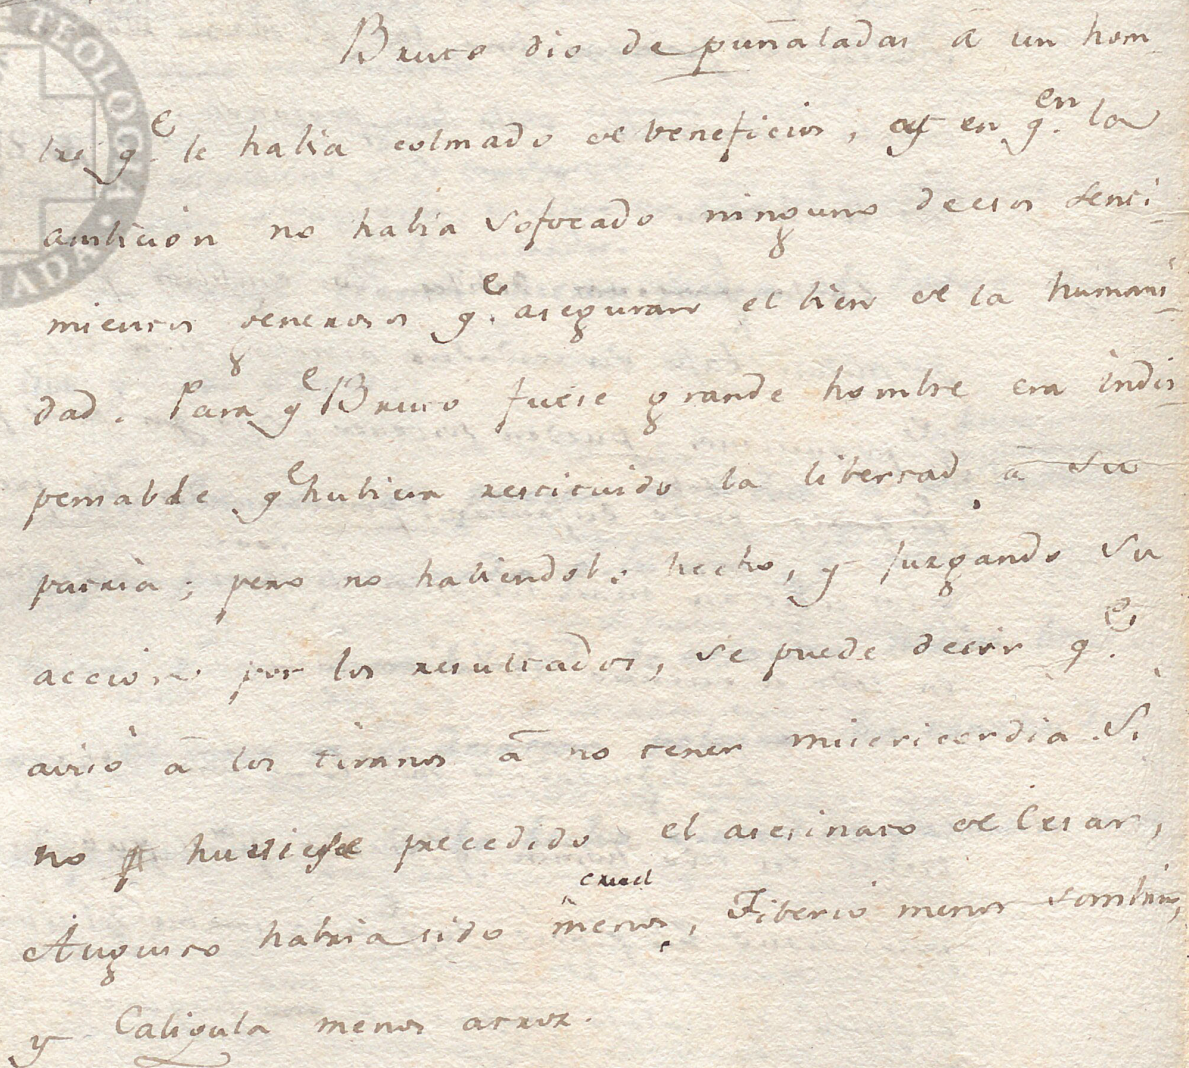 Bruto dio de puñaladas á un hom
bre q.e le habia colmado de beneficios, y en q.en la
ambicion no habia sofocado ninguno de esos senti-
mientos generosos q.e aseguran el bien de la humani-
dad. Para q.e Bruto fuese grande hombre era indis-
pensable q.e hubiera restituido la libertad á su
patria; pero no habiendolo hecho, y juzgando su
accion por los resultados, se puede decir q.e
avisó á los tiranos á no tener misericordia. Si
no hubiese precedido el asesinato de Cesar,
Augusto habria sido menos cruel, Tiberio menos sombrio,
y Caligula menos atroz.
TEOLOGIA